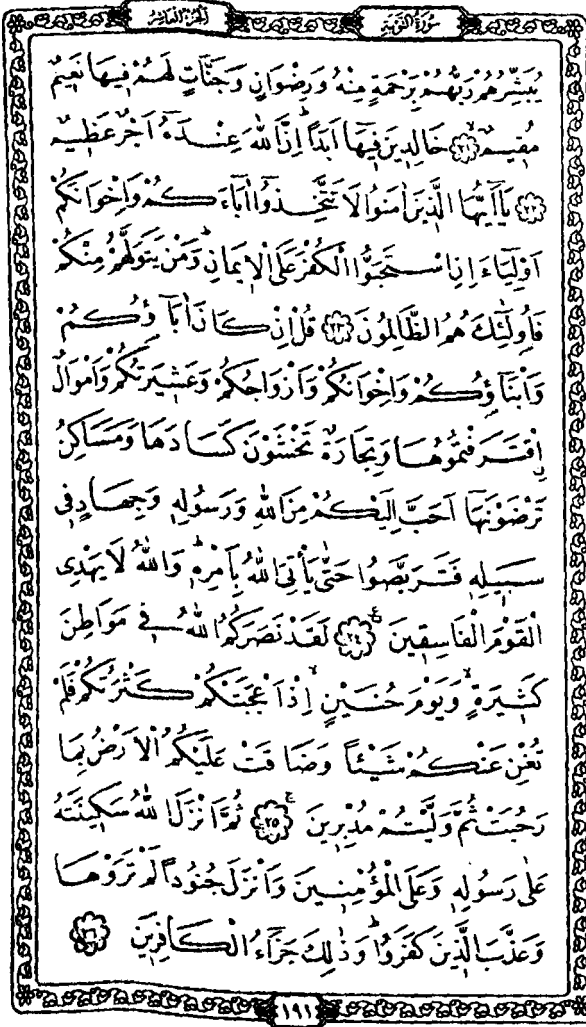 سُورَةُ التَّوْبَةِ
اَلْجُزْءُ الْعَاشِرُ
يُبَشِّرُهُمْ رَبُّهُمْ بِرَحْمَةٍ مِنْهُ وَرِضْوَانٍ وَجَنَّاتٍ لَهُمْ فِيهَا نَعِيمٌ
مُقِيمٌ ﴿٢١﴾ خَالِدِينَ فِيهَا اَبَدًاۜ اِنَّ اللّٰهَ عِنْدَهُٓ اَجْرٌ عَظِيمٌ
﴿٢٢﴾ يَٓا اَيُّهَا الَّذِينَ اٰمَنُوا لَا تَتَّخِذُٓوا اٰبَٓاءَكُمْ وَاِخْوَانَكُمْ
اَوْلِيَٓاءَ اِنِ اسْتَحَبُّوا الْكُفْرَ عَلَى الْاِيمَانِۜ وَمَنْ يَتَوَلَّهُمْ مِنْكُمْ
فَاُو۬لٰٓئِكَ هُمُ الظَّالِمُونَ ﴿٢٣﴾ قُلْ اِنْ كَانَ اٰبَٓاؤُ۬كُمْ
وَاَبْنَٓاؤُ۬كُمْ وَاِخْوَانُكُمْ وَاَزْوَاجُكُمْ وَعَشِيرَتُكُمْ وَاَمْوَالٌ
اِۨقْتَرَفْتُمُوهَا وَتِجَارَةٌ تَخْشَوْنَ كَسَادَهَا وَمَسَاكِنُ
تَرْضَوْنَهَٓا اَحَبَّ اِلَيْكُمْ مِنَ اللّٰهِ وَرَسُولِهِ وَجِهَادٍ فِي
سَبِيلِهِ فَتَرَبَّصُوا حَتّٰى يَأْتِيَ اللّٰهُ بِاَمْرِهِۜ وَاللّٰهُ لَا يَهْدِي
الْقَوْمَ الْفَاسِقِينَ ﴿٢٤﴾ لَقَدْ نَصَرَكُمُ اللّٰهُ فِي مَوَاطِنَ
كَثِيرَةٍۙ وَيَوْمَ حُنَيْنٍۙ اِذْ اَعْجَبَتْكُمْ كَثْرَتُكُمْ فَلَمْ
تُغْنِ عَنْكُمْ شَيْـًٔا وَضَاقَتْ عَلَيْكُمُ الْاَرْضُ بِمَا
رَحُبَتْ ثُمَّ وَلَّيْتُمْ مُدْبِرِينَ ﴿٢٥﴾ ثُمَّ اَنْزَلَ اللّٰهُ سَكِينَتَهُ
عَلٰى رَسُولِهِ وَعَلَى الْمُؤْمِنِينَ وَاَنْزَلَ جُنُودًا لَمْ تَرَوْهَا
وَعَذَّبَ الَّذِينَ كَفَرُواۜ وَذٰلِكَ جَزَٓاءُ الْكَافِرِينَ ﴿٢٦﴾
١٩١